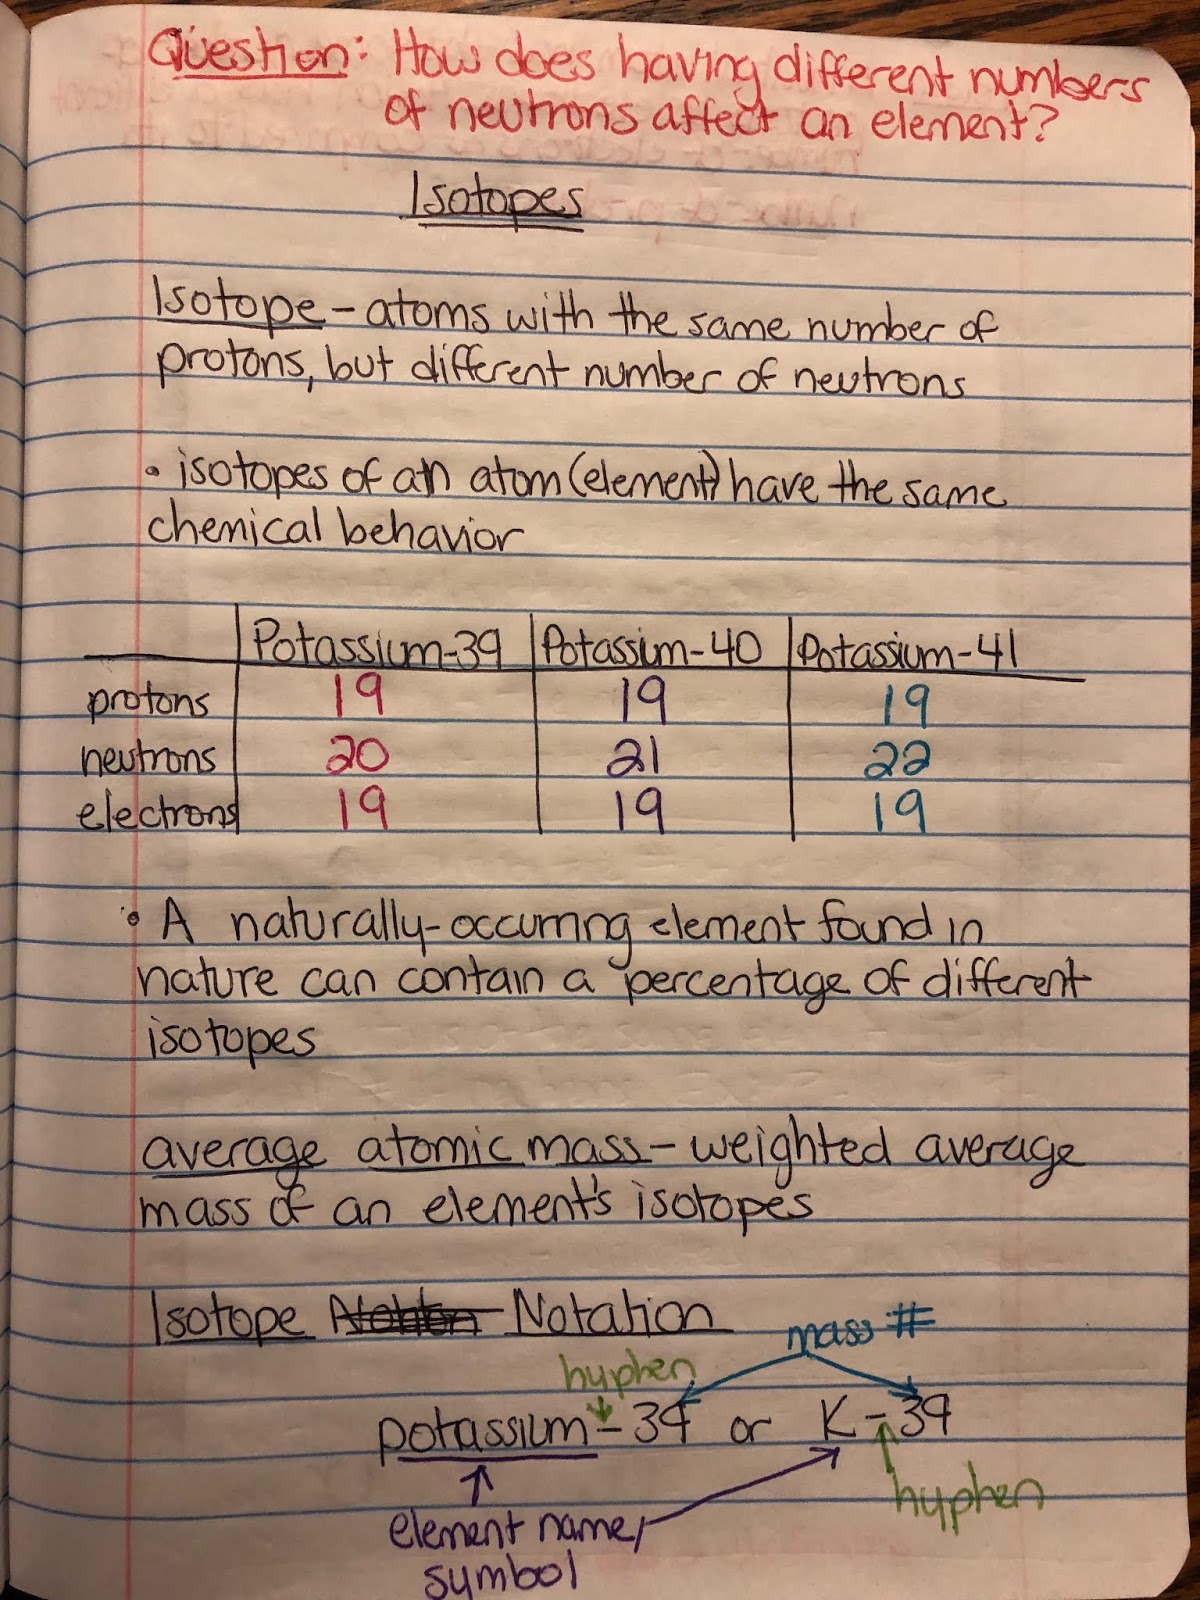 Question: How does having different numbers
of neutrons affect an element?
Isotopes
Isotope - atoms with the same number of
protons, but different number of neutrons
• isotopes of an atom (element) have the same
chemical behavior
Potassium-39 Potassium-40 Potassium-41
protons 19 19 19
neutrons 20 21 22
electrons 19 19 19
• A naturally-occurring element found in
nature can contain a percentage of different
isotopes
average atomic mass - weighted average
mass of an element's isotopes
Isotope Notation
mass #
hyphen
potassium - 39 or K - 39
hyphen
element name/
symbol